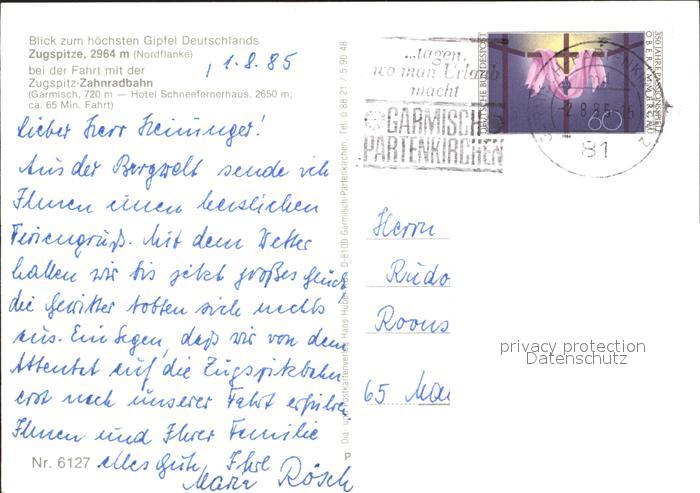 Blick zum höchsten Gipfel Deutschlands
Zugspitze, 2964 m (Nordflanke)
bei der Fahrt mit der
Zugspitz-Zahnradbahn
(Garmisch, 720 m — Hotel Schneefernerhaus, 2650 m;
ca. 65 Min. Fahrt)
1.8.85
Lieber Herr Heininger!
Aus der Bergwelt sende ich
Ihnen einen herzlichen
Feriengruß. Mit dem Wetter
hatten wir bis jetzt großes Glück,
die Gewitter tobten sich nachts
aus. Ein Segen, daß wir von dem
Attentat auf die Zugspitzbahn
erst nach unserer Fahrt erfuhren
Ihnen und Ihrer Familie
alles Gute, Ihre
Maria Rösch
Nr. 6127
Dia- und Postkartenverlag Hans Huber D-8100 Garmisch-Partenkirchen, Tel. 0 88 21 / 5 90 48
P
...tagen,
wo man Urlaub
macht
GARMISCH
PARTENKIRCHEN
DEUTSCHE BUNDESPOST
350 JAHRE PASSIONSSPIELE
OBERAMMERGAU
60
-2.8.85-15
81
2
Herrn
Rudo
Roons
65 Mai
privacy protection
Datenschutz